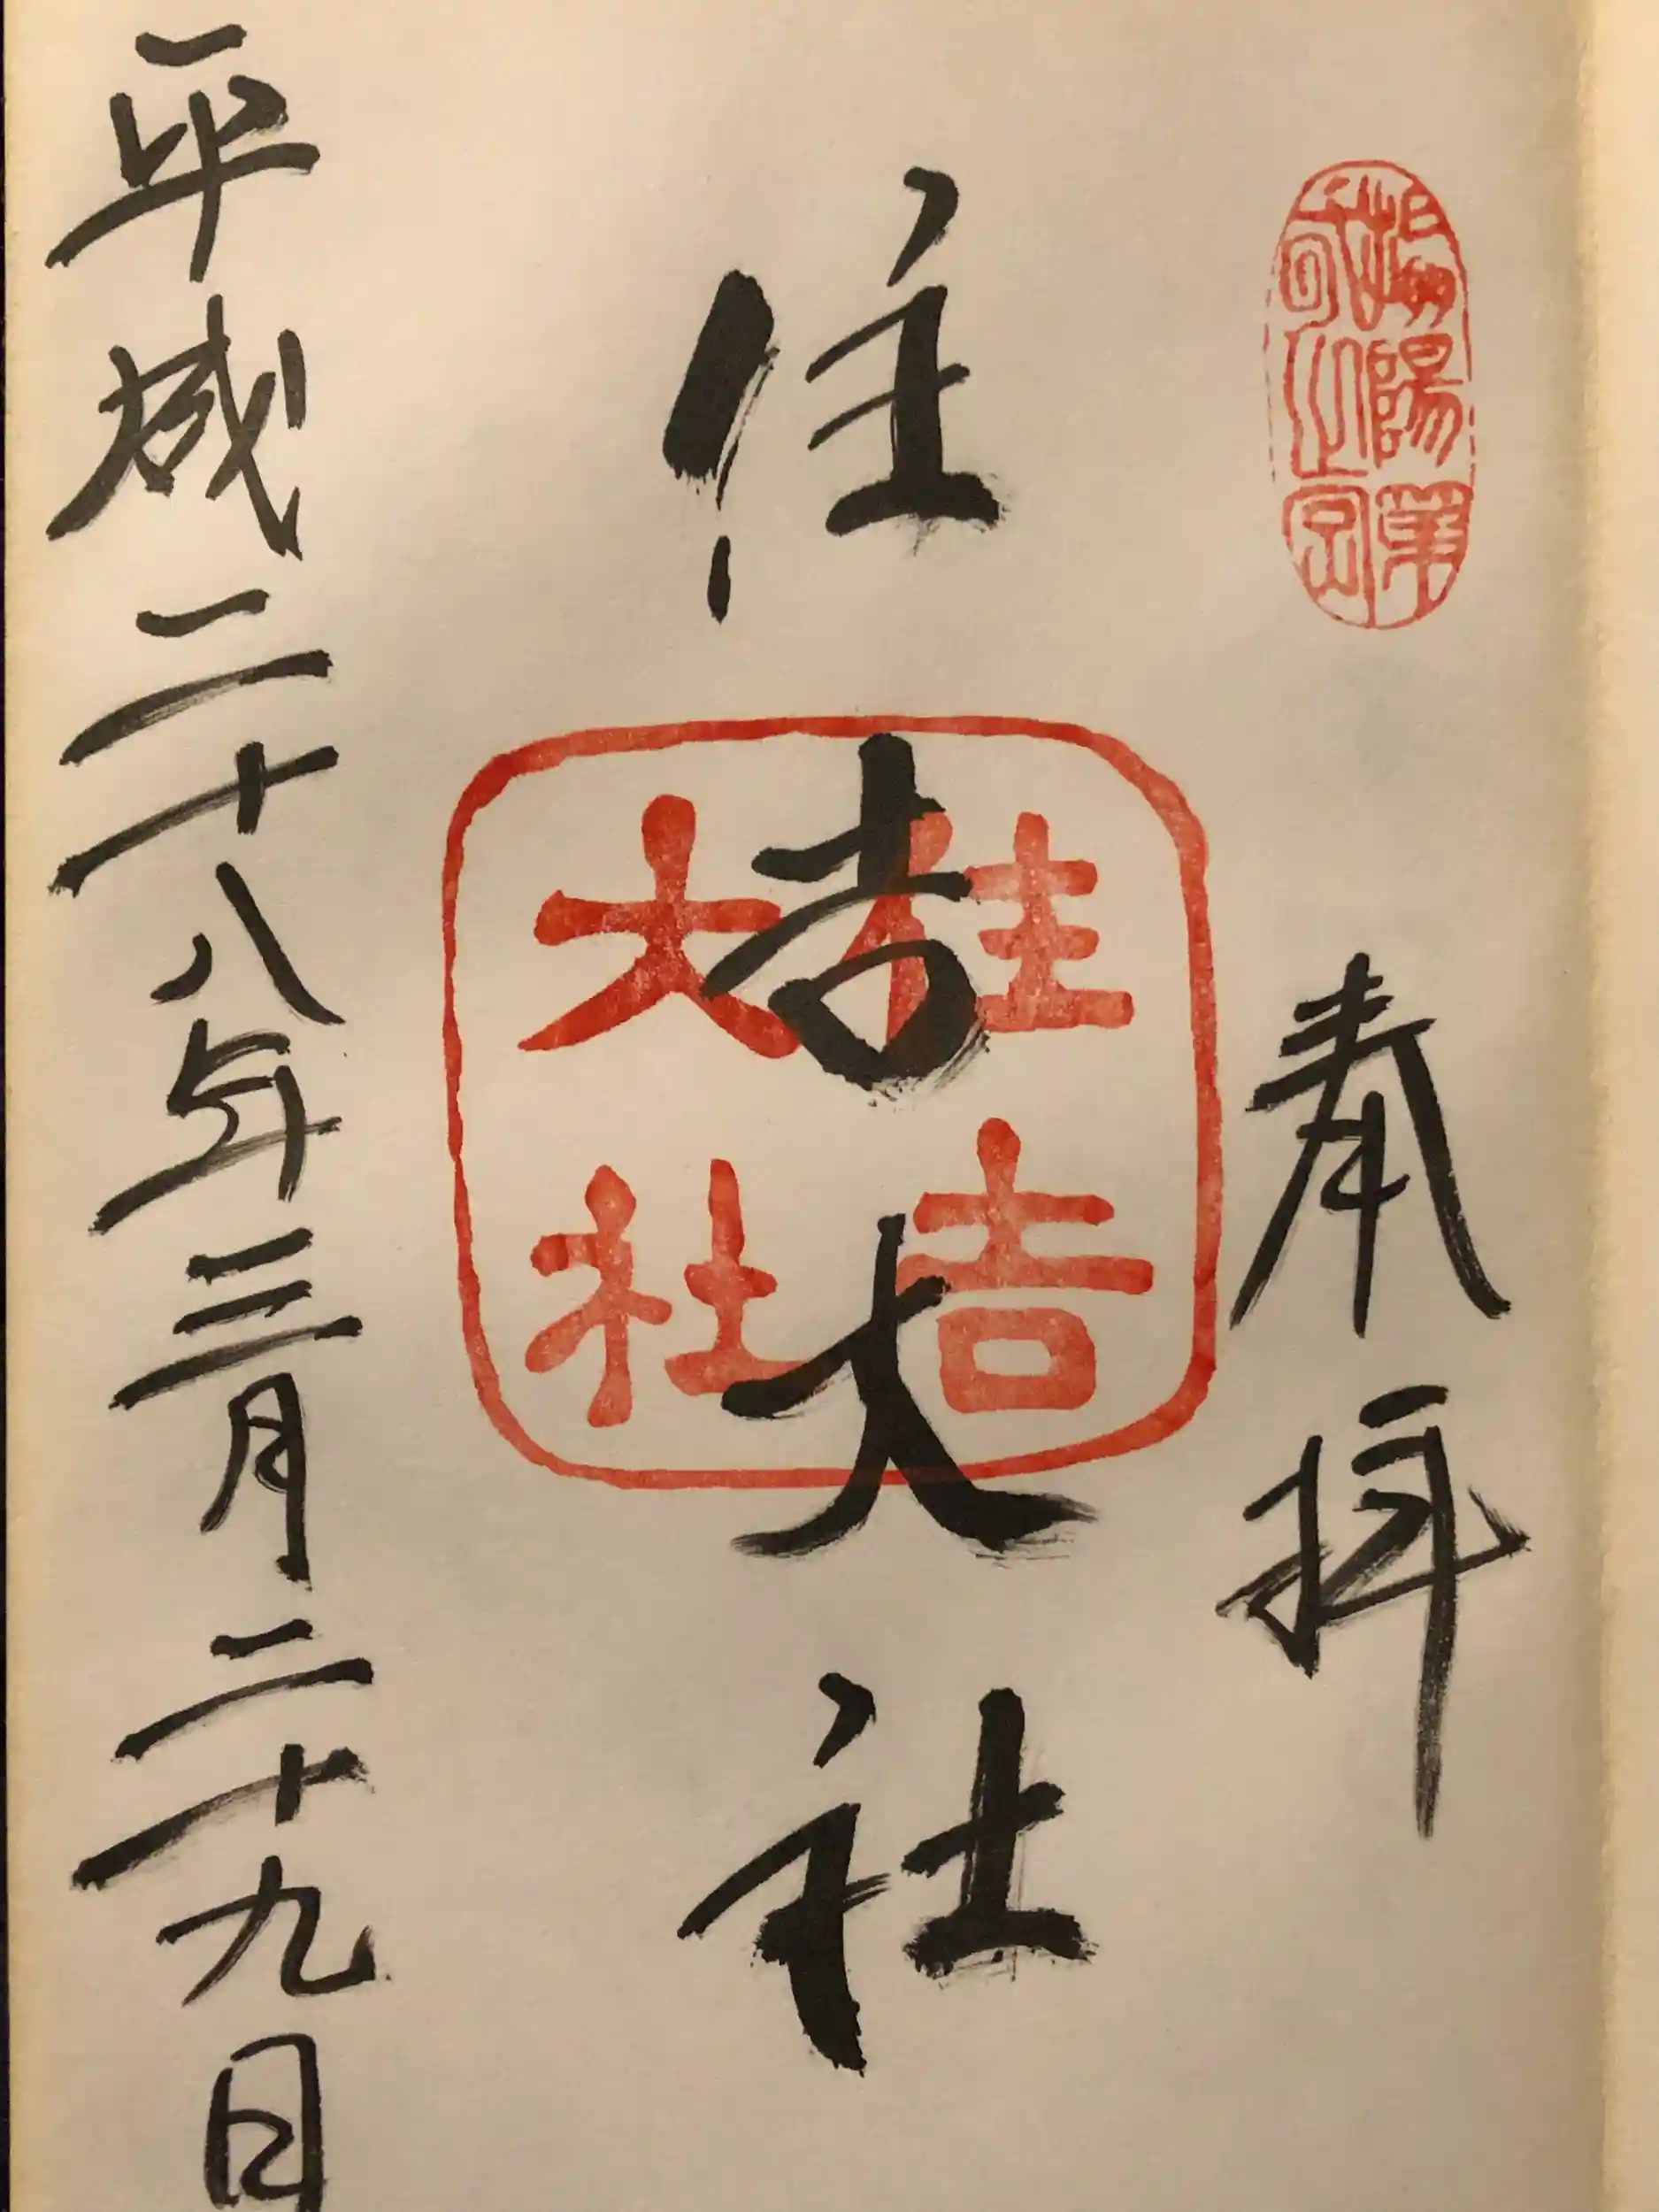 摂陽第
一之宮
奉拝
住吉大社
住吉
大社
平成二十八年三月二十九日